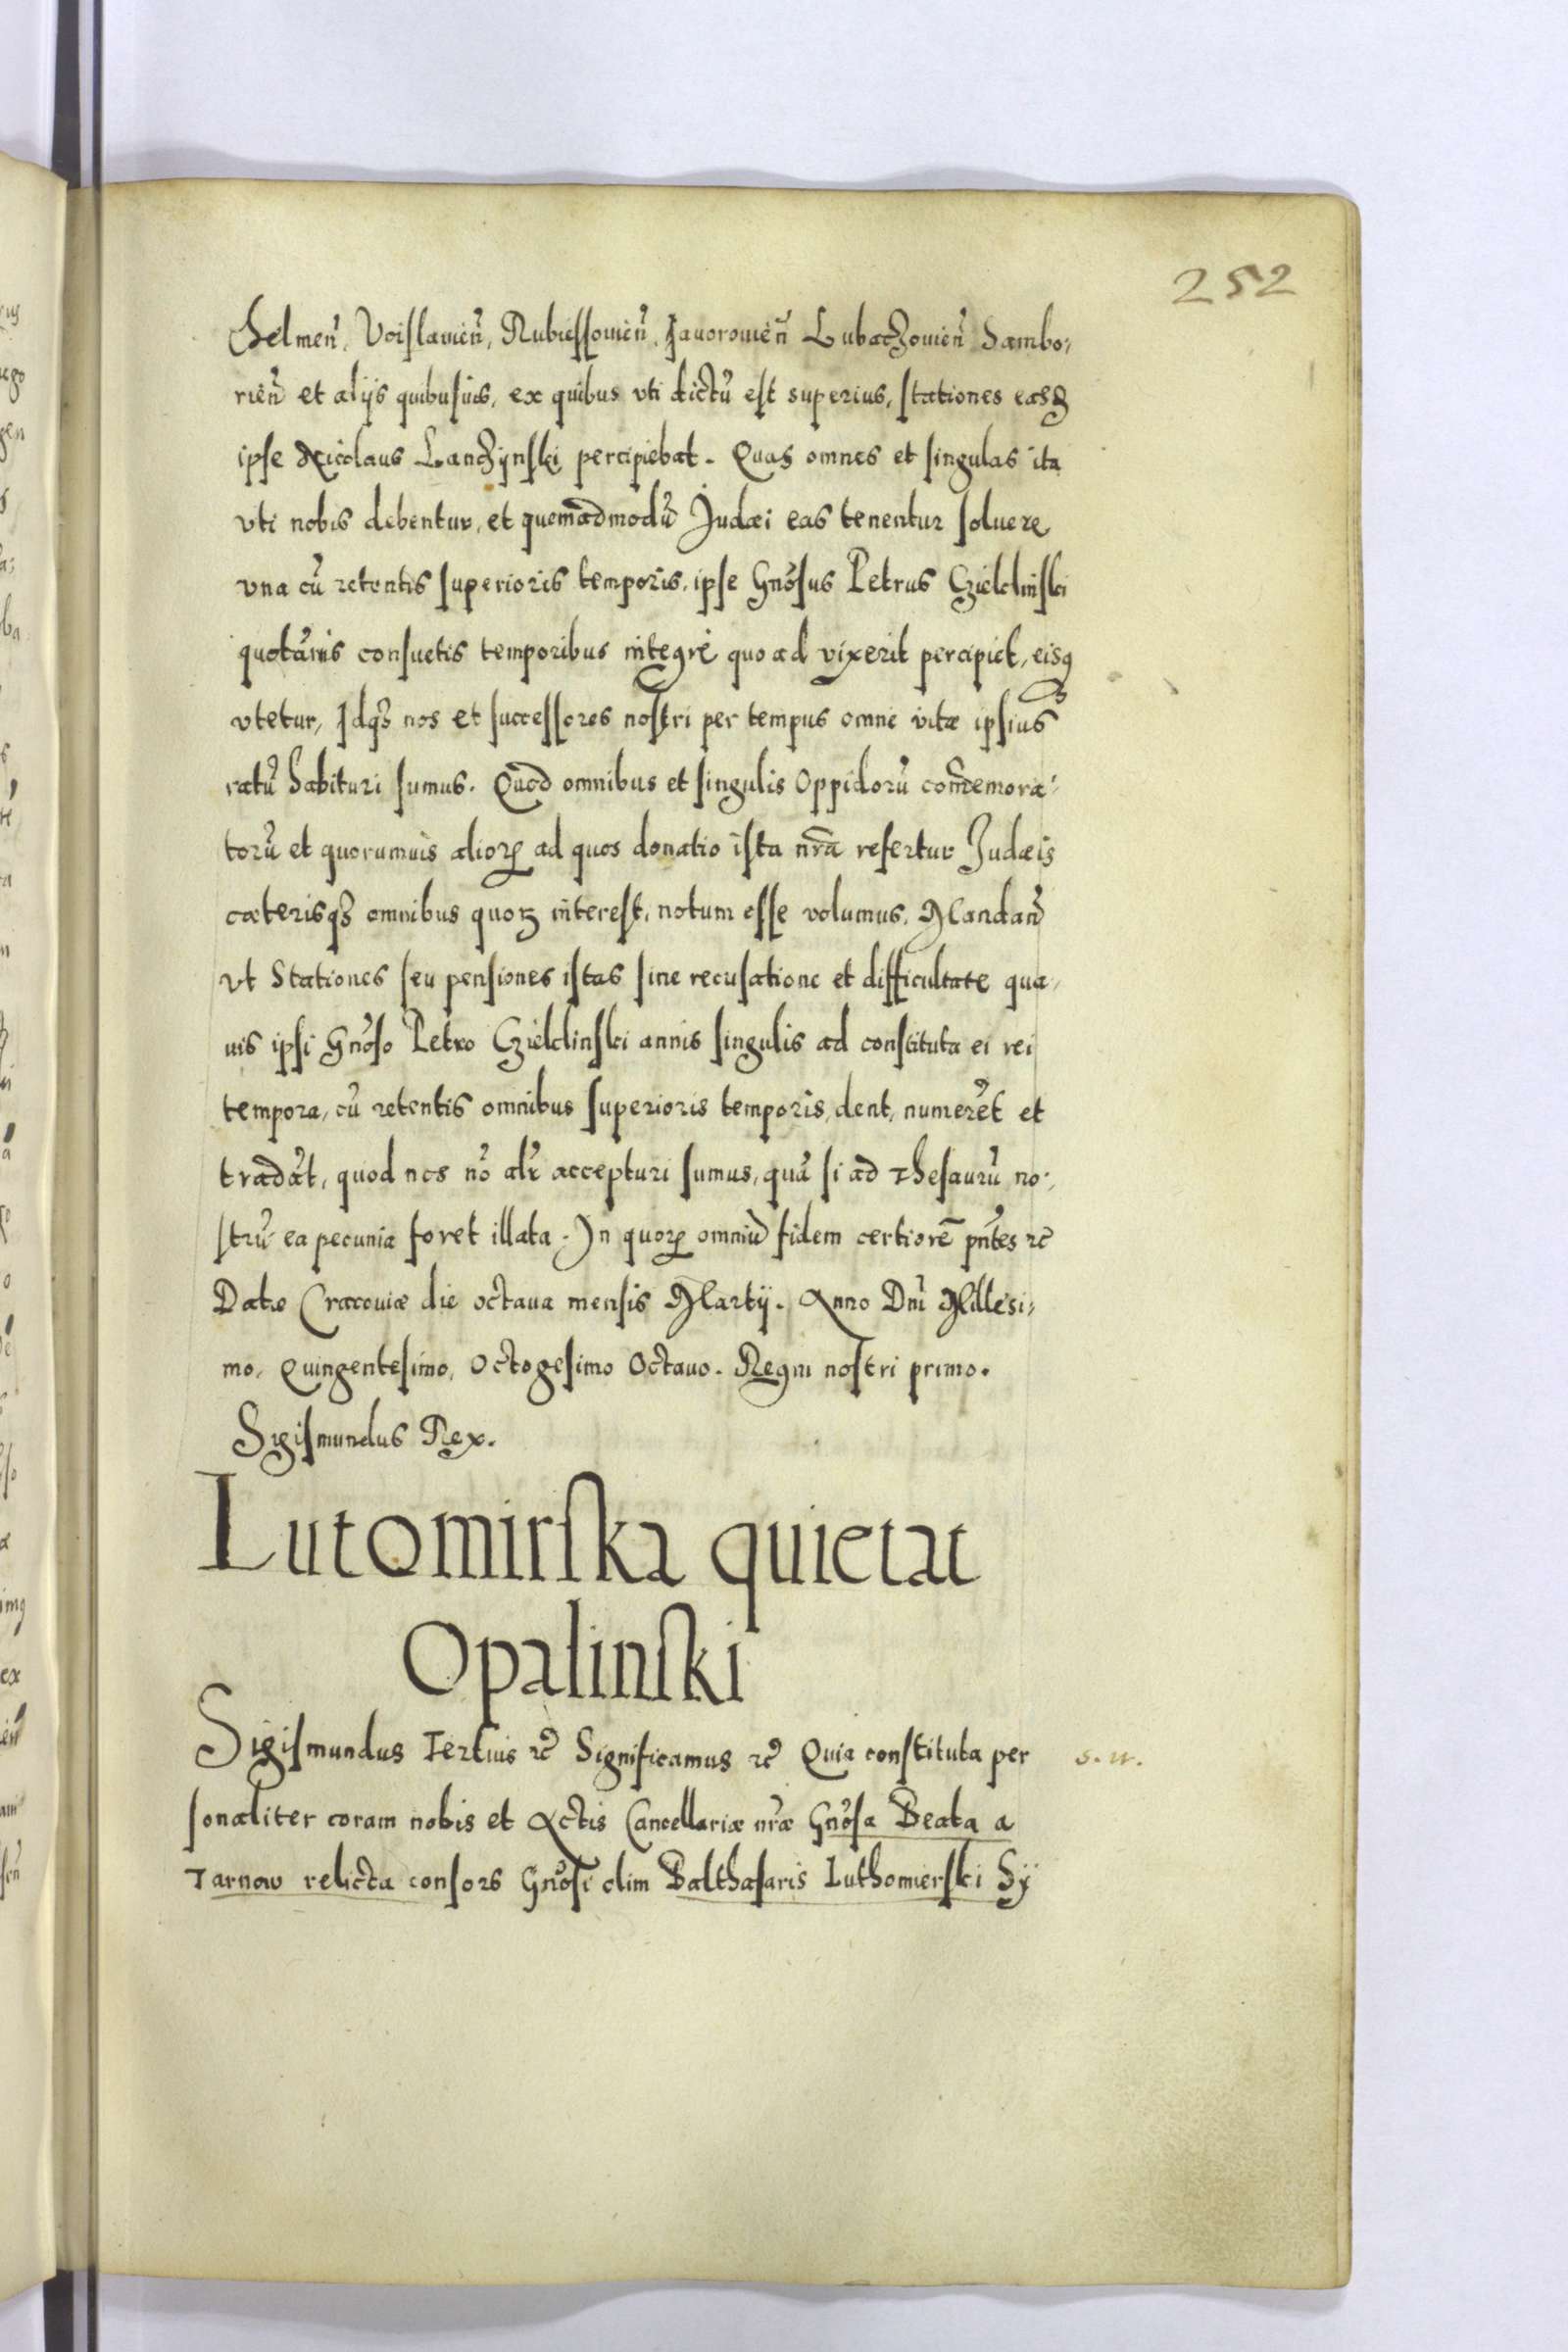 252
Chelmeñ, Voislauieñ, Rubiessouieñ, Jauorouieñ Lubaczouieñ Sambo,
rieñ et alijs quibusuis, ex quibus vti dictũ est superius, stationes easq3
ipse Nicolaus Lanczÿnski percipiebat. Quas omnes et singulas ita
vti nobis debentur, et quemadmodũ Judæi eas tenentur soluere,
vna cũ retentis superioris temporis, ipse Gnõsus Petrus Czieklinski
quotãnis consuetis temporibus integrè quo ad vixerit percipiet, eisq3
vtetur, Idq3 nos et successores nostri per tempus omne vitæ ipsius
ratũ habituri sumus. Quod omnibus et singulis Oppidorũ com̃emora-
torũ et quorumuis alioꝝ ad quos donatio ista nrã refertur Judæis
cæterisq3 omnibus quoꝝ interest, notum esse volumus, Mandañ
vt Stationes seu pensiones istas sine recusatione et difficultate qua,
uis ipsi Gnõso Petro Czieklinski annis singulis ad constituta ei rei
tempora, cũ retentis omnibus superioris temporis, dent, numerẽt et
tradãt, quod nos nõ alr̃ accepturi sumus, quã si ad Thesaurũ no-
strũ ea pecunia foret illata. In quoꝝ omniũ fidem certiorẽ pñtes rc̃
Datæ Cracouiæ die octaua mensis Martij. Anno Dnĩ Millesi,
mo, Quingentesimo, Octogesimo Octauo. Regni nostri primo.
Sigismundus Rex.
Lutomirska quietat
Opalinski
Sigismundus Tertius rc̃ Significamus rc̃ Quia constituta per s. w.
sonaliter coram nobis et Actis Cancellariæ nrã̃e Gnõsa Beata a
Tarnow relicta consors Gnõsi olim Balthasaris Luthomierski Sÿ